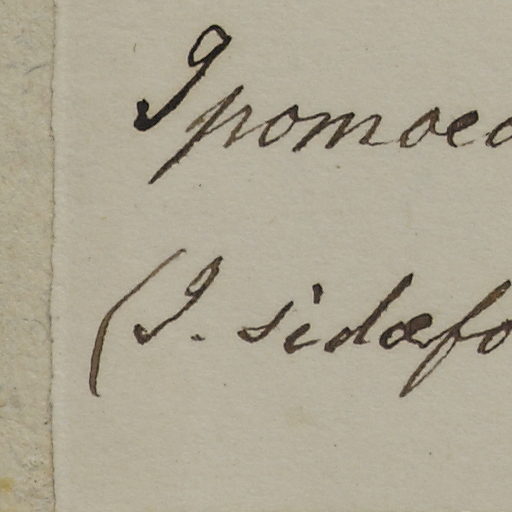 Ipomoea
(I. sidæfo